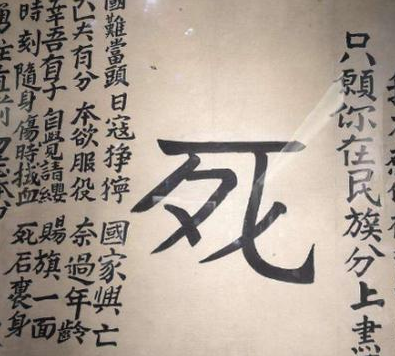 只願你在民族分上盡
死
國難當頭日寇猙獰 國家興亡
匹夫有分 本欲服役 奈過年齡
幸吾有子 自覺請纓 賜旗一面
時刻隨身 傷時拭血 死后裹身
勇往直前